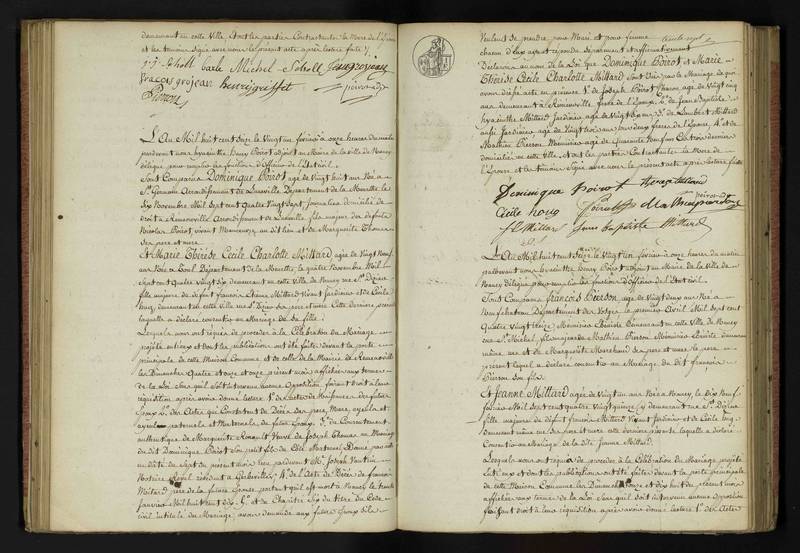 demeurant en cette Ville
et les temoins signé avec nous le present acte après lecture faite
Scholl barle Michel Scholl
françois grojean henri griffet
poirot adj
Pierron
L'An Mil huit cent seize le Vingt un fevrier à onze heures du matin
pardevant nous hyacinthe henry Poirot adjoint au Maire de la Ville de Nancy
délégué pour remplir les fonctions d'officier de l'Etat civil
Sont Comparus Dominique Poirot agé de Vingt huit ans Né à
St Germain Arrondissement de Luneville Departement de la Meurthe le
six Novembre Mil sept cent quatre Vingt sept, journalier domicilié de
droit à Remenoville Arrondissement de Luneville fils majeur des defunts
Nicolas Poirot, vivant Manoeuvre, au dit lieu et de Marguerite Thomas
ses pere et mere
Et Marie Thérèse Cécile Charlotte Millard agée de Vingt Neuf
ans Née à Toul Departement de la Meurthe, le quatre Novembre Mil
sept cent quatre Vingt six demeurant en cette Ville de Nancy rue St Dizier
fille majeure de defunt francois Etienne Millard vivant Jardinier et de Cécile
hug, demeurant en cette Ville ses pere et mere Cette derniere presente
laquelle a déclaré consentir au Mariage de sa fille.
Lesquels nous ont requis de proceder à la Célébration du Mariage
projetté entre eux et dont les publications ont été faites devant la porte
principale de cette Maison Commune et de celle de la Mairie de Remenoville
les Dimanches quatre et onze
de la Loi sans qu'il soit intervenu aucune Opposition, faisant droit à leur
réquisition après avoir donné lecture 1° des actes de Naissance des futurs
Epoux 2° des Actes qui Constatent le Décès des pere, Mere, ayeuls et
ayeules paternels et Maternels du futur Epoux 3° du Consentement
authentique de Marguerite Renault Veuve de Joseph Thomas au Mariage
du dit Dominique Poirot son petit fils
en date du sept du present mois reçu pardevant Me Joseph
Notaire Royal resident à Gerbeviller 4° de l'Acte de Décès de francois
Millard pere de la future Epouse portant qu'il est mort à Nancy le trente
Janvier Mil huit cent dix 5° et du Chapitre six du titre du Code
civil intitulé du Mariage, avons demandé aux futurs Epoux s'ils
Veulent se prendre pour Mari et pour femme
chacun d'eux ayant répondu séparément et affirmativement
Declarons au nom de la Loi que Dominique Poirot et Marie
Thérèse Cécile Charlotte Millard sont Unis par le Mariage de quoi
avons dressé acte en presence 1° de Joseph Poirot agé de Vingt cinq
ans demeurant à Remenoville frere de l'Epoux 2° de Jean Baptiste
hyacinthe Millard Jardinier agé de Vingt un ans 3° de Lambert Millard
aussi Jardinier agé de Vingt trois ans tous deux freres de l'Epouse 4° et de
Mathieu Pierron Menuisier agé de Quarante Neuf ans
domiciliés en cette Ville et les parties Contractantes la Mere de
l'Epouse et les temoins signé avec nous le present acte après lecture faite
Dominique Poirot therese Millard
Cécile houg
poirot adj
L Millard Jean baptiste Millard
L'An Mil huit cent seize le Vingt un fevrier à onze heures du matin
pardevant nous hyacinthe henry Poirot adjoint au Maire de la Ville de
Nancy délégué pour remplir les fonctions d'officier de l'Etat civil
Sont Comparus François Pierron, agé de Vingt deux ans Né à
Neufchateau Departement des Vosges le premier Avril Mil sept cent
Quatre Vingt treize, Menuisier Ebéniste demeurant en cette Ville de Nancy
rue St Michel, fils majeur de Mathieu Pierron Menuisier Ebéniste demeurant
même rue et de Marguerite Marchand ses pere et mere, le pere
present lequel a déclaré consentir au Mariage du dit François
Pierron son fils.
Et Jeanne Millard agée de Vingt un ans Née à Nancy, le Dix Neuf
fevrier Mil sept cent quatre Vingt quinze, y demeurant rue St Dizier
fille majeure de défunt francois Millard Vivant Jardinier et de Cécile hug
demeurant même rue ses pere et mere cette derniere presente laquelle a déclaré
Consentir au Mariage de la dite Jeanne Millard.
Lesquels nous ont requis de proceder à la Célébration du Mariage projetté
entre eux et dont les publications ont été faites devant la porte principale
de cette Maison Commune les Dimanches onze et dix huit du présent mois
affichées aux termes de la Loi sans qu'il soit intervenu aucune Opposition
faisant droit à leur réquisition après avoir donné lecture 1° des Actes